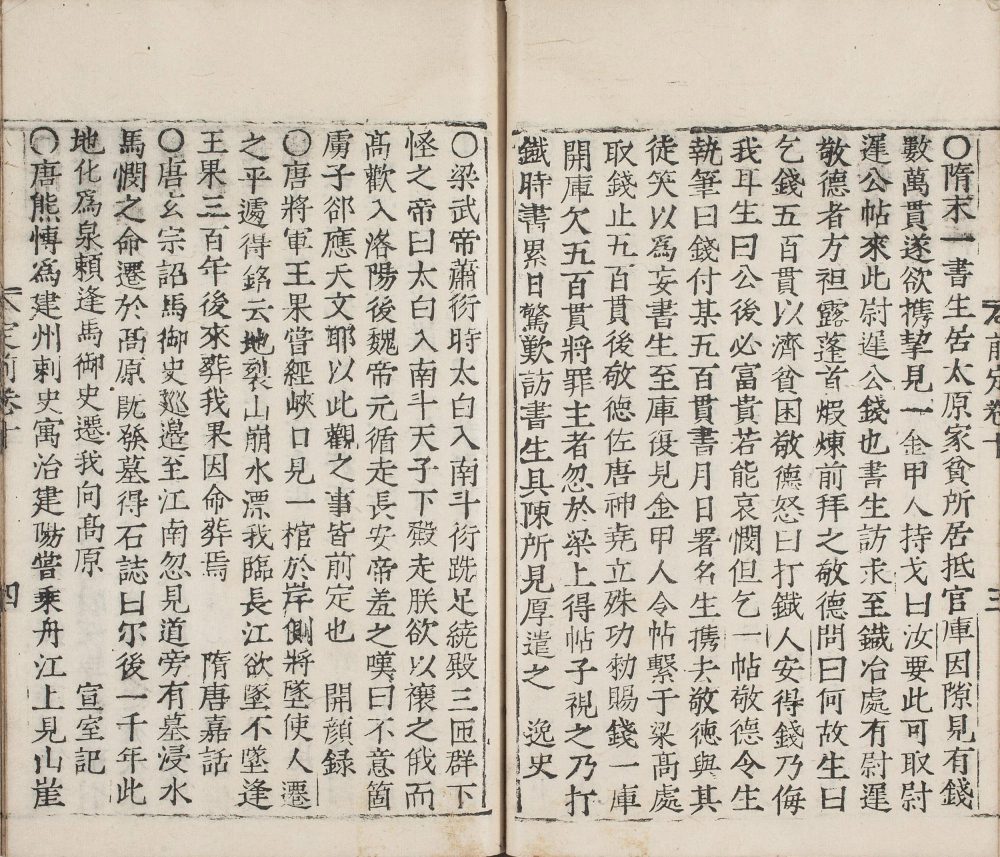 〇隋末一書生居太原家貧所居抵官庫因隙見有錢
數萬貫遂欲携挈見一金甲人持戈曰汝要此可取尉
遲公帖來此尉遲公錢也書生訪求至鐵冶處有尉遲
敬德者方袒露蓬首煆煉前拜之敬德問曰何故生曰
乞錢五百貫以濟貧困敬德怒曰打鐵人安得錢乃侮
我耳生曰公後必富貴若能哀憫但乞一帖敬德令生
執筆曰錢付某五百貫書月日署名生携去敬德與其
徒笑以為妄書生至庫復見金甲人令帖繫于梁髙處
取錢止五百貫後敬德佐唐神堯立殊功勑賜錢一庫
開庫欠五百貫將罪主者忽於梁上得帖子視之乃打
鐵時書累日驚歎訪書生具陳所見厚遣之　逸史
〇梁武帝蕭衍時太白入南斗衍跣足繞殿三匝群下
怪之帝曰太白入南斗天子下殿走朕欲以禳之俄而
髙歡入洛陽後魏帝元循走長安帝羞之嘆曰不意箇
虜子郤應天文耶以此觀之事皆前定也　開顔録
〇唐將軍王果嘗經峽口見一棺於岸側將墜使人遷
之平處得銘云地裂山崩水漂我臨長江欲墜不墜逢
王果三百年後來葬我果因命葬焉　隋唐嘉話
〇唐玄宗詔馬御史廵邉至江南忽見道旁有墓浸水
馬憫之命遷於髙原既發墓得石誌曰尔後一千年此
地化爲泉頼逢馬御史遷我向髙原　宣室記
〇唐熊慱爲建州刺史寓治建陽嘗乘舟江上見山崖
前定卷十
三
前定卷十
四